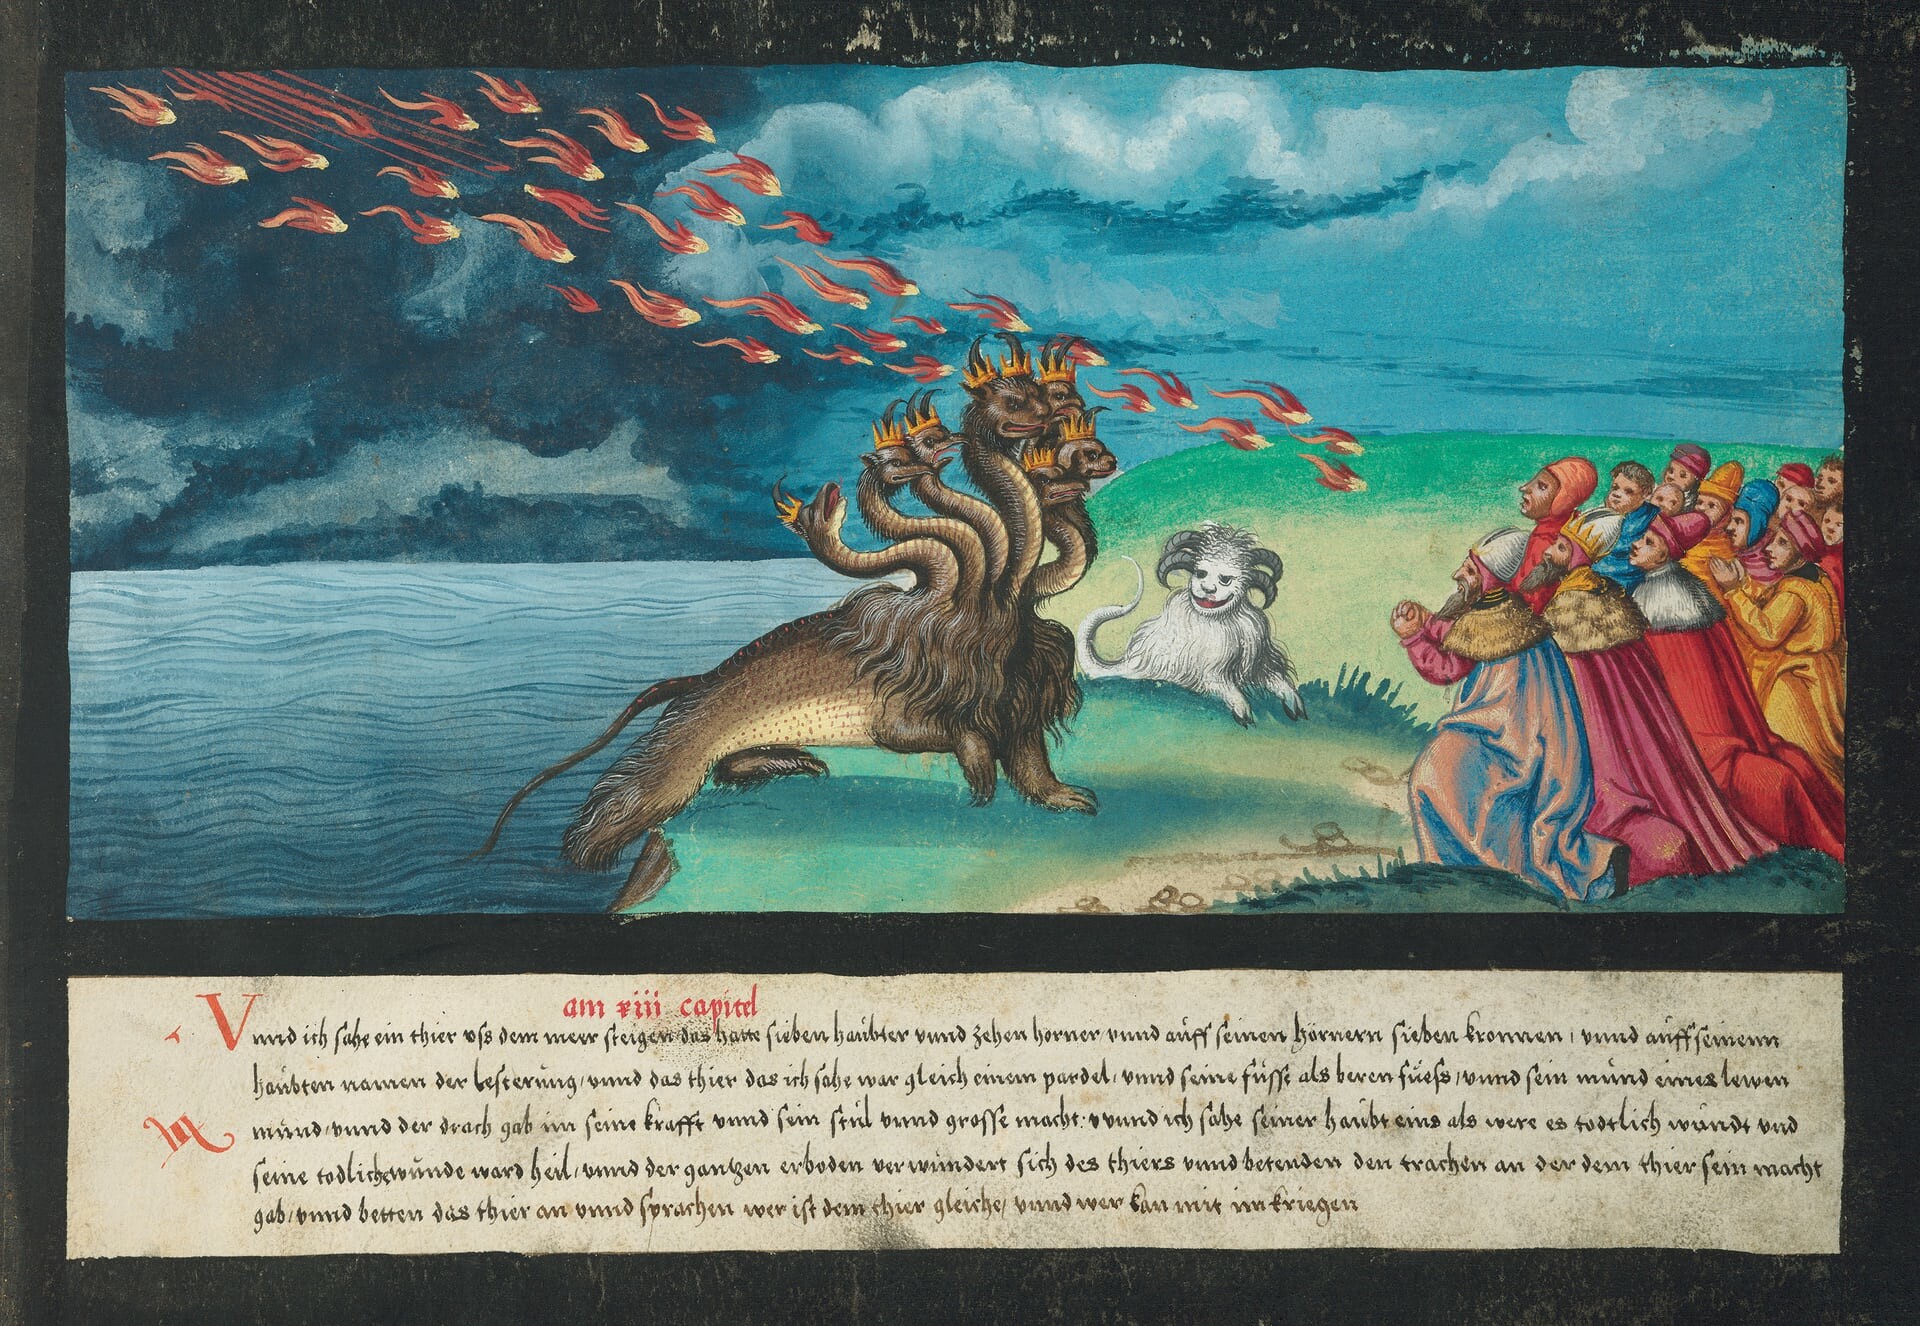 am xiii capitel
Vnnd ich sahe ein thier vss dem meer steigen das hatte sieben haübter vnnd zehen horner vnnd aüff seinen hörnern sieben kronnen / vnnd aüff seinenn
haübten namen der lesterüng / vnnd das thier das ich sahe war gleich einem pardel / vnnd seine füsse als beren füess / vnnd sein münd eines lewen
münd / vnnd der drach gab im seine krafft vnnd sein stül vnnd grosse macht : vnnd ich sahe seiner haübt eins als were es todtlich wündt vnd
seine todlichewünde ward heil / vnnd der gantzen erboden verwündert sich des thiers vnnd betenden den trachen an der dem thier sein macht
gab / vnnd betten das thier an vnnd sprachen wer ist dem thier gleiche / vnnd wer kan mit im kriegen